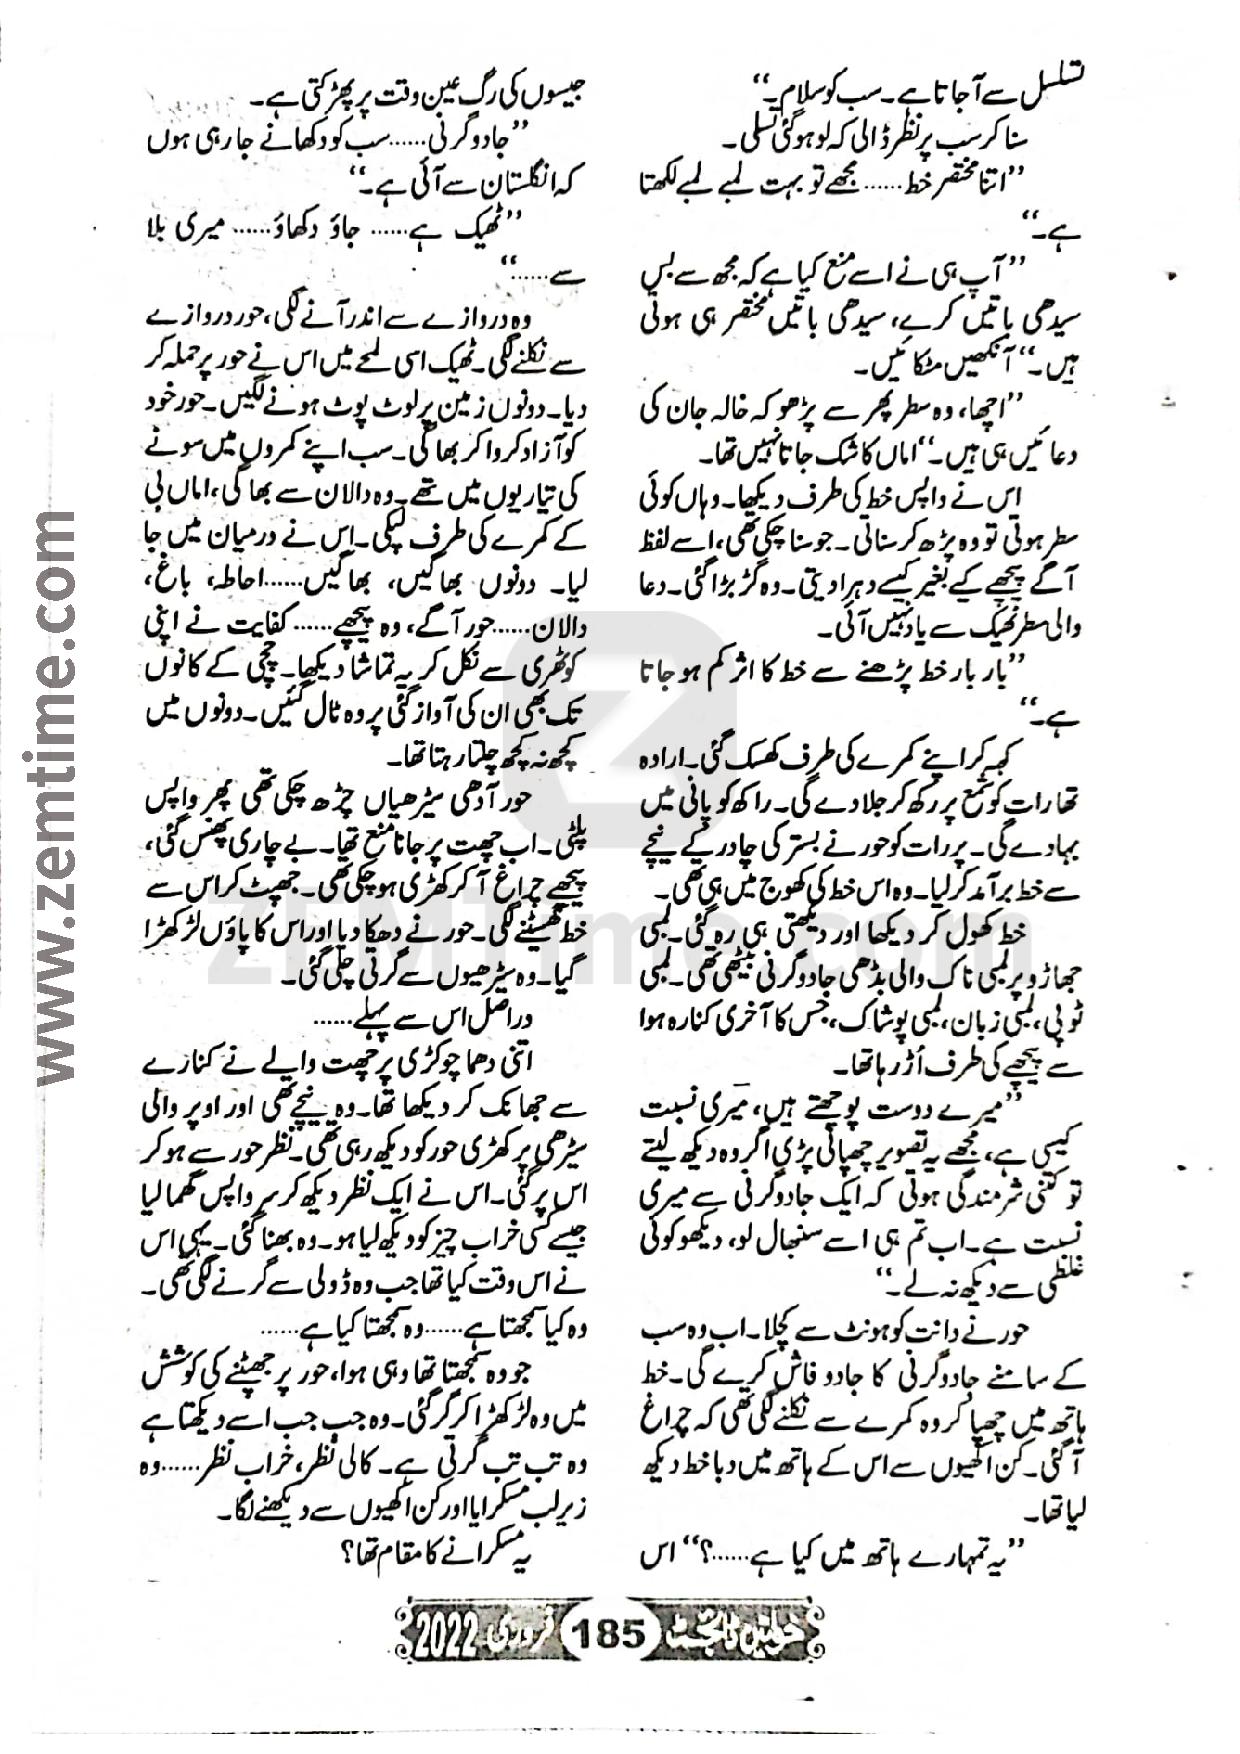 تسلسل سے آجاتا ہے۔ سب کو سلام۔“
سنا کر سب پر نظر ڈالی کہ لو ہو گئی تسلی۔
”اتنا مختصر خط...... مجھے تو بہت لمبے لمبے لکھتا
ہے۔“
”آپ ہی نے اسے منع کیا ہے کہ مجھ سے بس
سیدھی باتیں کرے، سیدھی باتیں مختصر ہی ہوتی
ہیں۔“ آنکھیں مٹکائیں۔
”اچھا، وہ سطر پھر سے پڑھو کہ خالہ جان کی
دعائیں ہی ہیں۔“ اماں کا شک جاتا نہیں تھا۔
اس نے واپس خط کی طرف دیکھا۔ وہاں کوئی
سطر ہوتی تو وہ پڑھ کر سناتی۔ جو سنا چکی تھی، اسے لفظ
آگے پیچھے کیے بغیر کیسے دہرا دیتی۔ وہ گڑبڑا گئی۔ دعا
والی سطر ٹھیک سے یاد نہیں آئی۔
”بار بار خط پڑھنے سے خط کا اثر کم ہو جاتا
ہے۔“
کہہ کر اپنے کمرے کی طرف کھسک گئی۔ ارادہ
تھا رات کو شمع پر رکھ کر جلا دے گی۔ راکھ کو پانی میں
بہا دے گی۔ پر رات کو حور نے بستر کی چادر کے نیچے
سے خط برآمد کر لیا۔ وہ اس خط کی کھوج میں ہی تھی۔
خط کھول کر دیکھا اور دیکھتی ہی رہ گئی۔ لمبی
جھاڑو پر لمبی ناک والی بڈھی جادوگرنی بیٹھی تھی۔ لمبی
ٹوپی، لمبی زبان، لمبی پوشاک، جس کا آخری کنارہ ہوا
سے پیچھے کی طرف اُڑ رہا تھا۔
”میرے دوست پوچھتے ہیں، میری نسبت
کیسی ہے، مجھے یہ تصویر چھپانی پڑی اگر وہ دیکھ لیتے
تو کتنی شرمندگی ہوتی کہ ایک جادوگرنی سے میری
نسبت ہے۔ اب تم ہی اسے سنبھال لو، دیکھو کوئی
غلطی سے دیکھ نہ لے۔“
حور نے دانت کو ہونٹ سے کچلا۔ اب وہ سب
کے سامنے جادوگرنی کا جادو فاش کرے گی۔ خط
ہاتھ میں چھپا کر وہ کمرے سے نکلنے لگی تھی کہ چراغ
آ گئی۔ کن اکھیوں سے اس کے ہاتھ میں دبا خط دیکھ
لیا تھا۔
”یہ تمہارے ہاتھ میں کیا ہے......؟“ اس
جیسوں کی رگ عین وقت پر پھڑکتی ہے۔
”جادوگرنی...... سب کو دکھانے جا رہی ہوں
کہ انگلستان سے آئی ہے۔“
”ٹھیک ہے...... جاؤ دکھاؤ...... میری بلا
سے......“
وہ دروازے سے اندر آنے لگی، حور دروازے
سے نکلنے لگی۔ ٹھیک اسی لمحے میں اس نے حور پر حملہ کر
دیا۔ دونوں زمین پر لوٹ پوٹ ہونے لگیں۔ حور خود
کو آزاد کروا کر بھاگی۔ سب اپنے کمروں میں سونے
کی تیاریوں میں تھے۔ وہ دالان سے بھاگی، اماں بی
کے کمرے کی طرف لپکی۔ اس نے درمیان میں جا
لیا۔ دونوں بھاگیں، بھاگیں...... احاطہ، باغ،
دالان...... حور آگے، وہ پیچھے...... کفایت نے اپنی
کوٹھری سے نکل کر یہ تماشا دیکھا۔ چچی کے کانوں
تک بھی ان کی آواز گئی پر وہ ٹال گئیں۔ دونوں میں
کچھ نہ کچھ چلتا رہتا تھا۔
حور آدھی سیڑھیاں چڑھ چکی تھی پھر واپس
پلٹی۔ اب چھت پر جانا منع تھا۔ بے چاری پھنس گئی،
پیچھے چراغ آ کر کھڑی ہو چکی تھی۔ جھپٹ کر اس سے
خط گھسیٹنے لگی۔ حور نے دھکا دیا اور اس کا پاؤں لڑکھڑا
گیا۔ وہ سیڑھیوں سے گرتی چلی گئی۔
دراصل اس سے پہلے......
اتنی دھما چوکڑی پر چھت والے نے کنارے
سے جھانک کر دیکھا تھا۔ وہ نیچے تھی اور اوپر والی
سیڑھی پر کھڑی حور کو دیکھ رہی تھی۔ نظر حور سے ہو کر
اس پر گئی۔ اس نے ایک نظر دیکھ کر سر واپس گھما لیا
جیسے کسی خراب چیز کو دیکھ لیا ہو۔ وہ بھنا گئی۔ یہی اس
نے اس وقت کیا تھا جب وہ ڈولی سے گرنے لگی تھی۔
وہ کیا سمجھتا ہے...... وہ سمجھتا کیا ہے......
جو وہ سمجھتا تھا وہی ہوا، حور پر جھپٹنے کی کوشش
میں وہ لڑکھڑا کر گر گئی۔ وہ جب جب اسے دیکھتا ہے
وہ تب تب گرتی ہے۔ کالی نظر، خراب نظر...... وہ
زیر لب مسکرایا اور کن اکھیوں سے دیکھنے لگا۔
یہ مسکرانے کا مقام تھا؟
خواتین ڈائجسٹ 185 فروری 2022
www.zemtime.com
ZEMTime.com